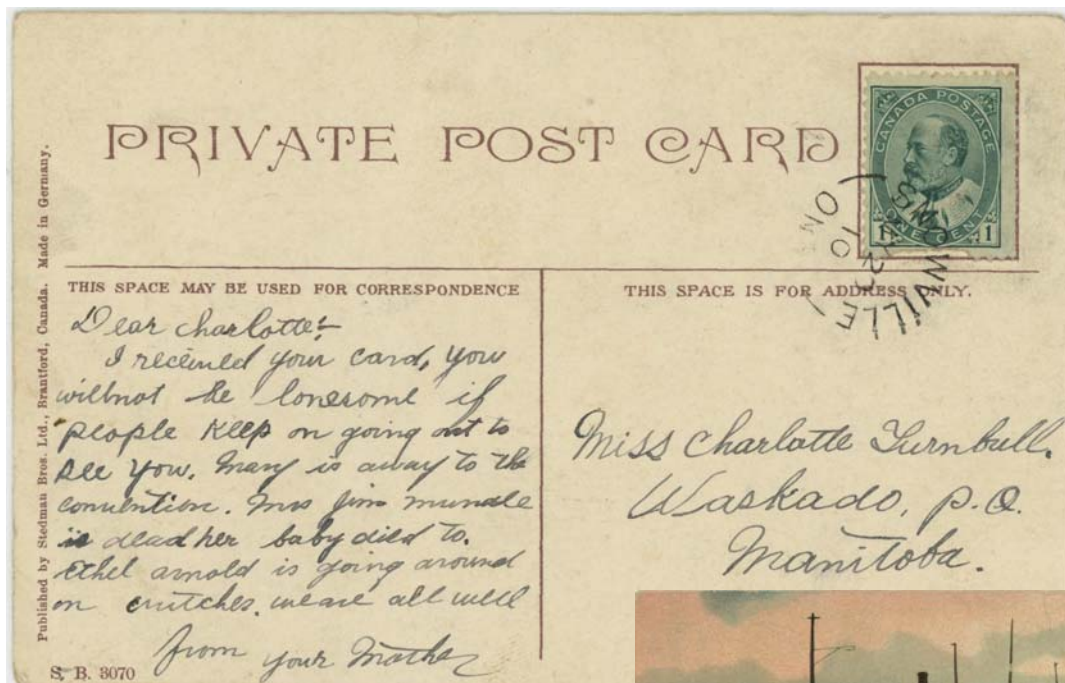 PRIVATE POST CARD
CANADA POSTAGE
ONE CENT
1 1
10
ON
Published by Stedman Bros. Ltd., Brantford, Canada. Made in Germany.
THIS SPACE MAY BE USED FOR CORRESPONDENCE
Dear Charlotte:-
I received your card, you
will not be lonesome if
people keep on going out to
see you. Mary is away to the
convention. Mrs Jim
is dead her baby died to.
Ethel Arnold is going around
on crutches. we are all well
from your Mother
S. B. 3070
THIS SPACE IS FOR ADDRESS ONLY.
Miss Charlotte Turnbull.
Waskado, P.O.
Manitoba.